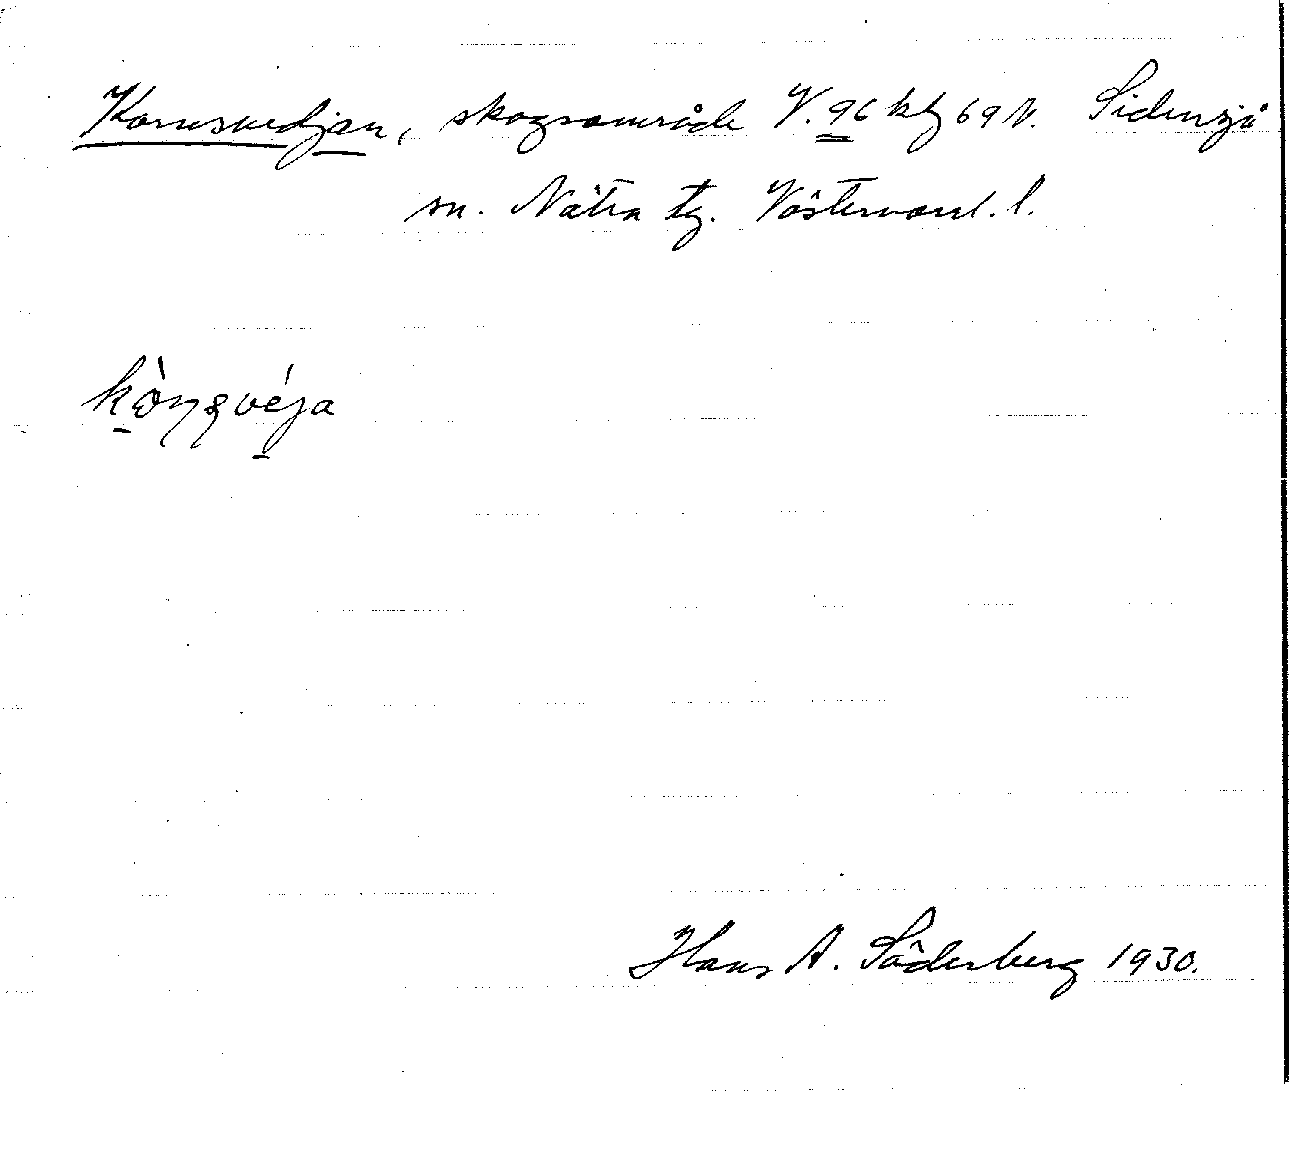 Kornsvedjan, skogsområde V. 96 kbg 69 N. Sidensjö
sn. Nätra tg. Västernorrl. l.
Hans A. Söderberg 1930.